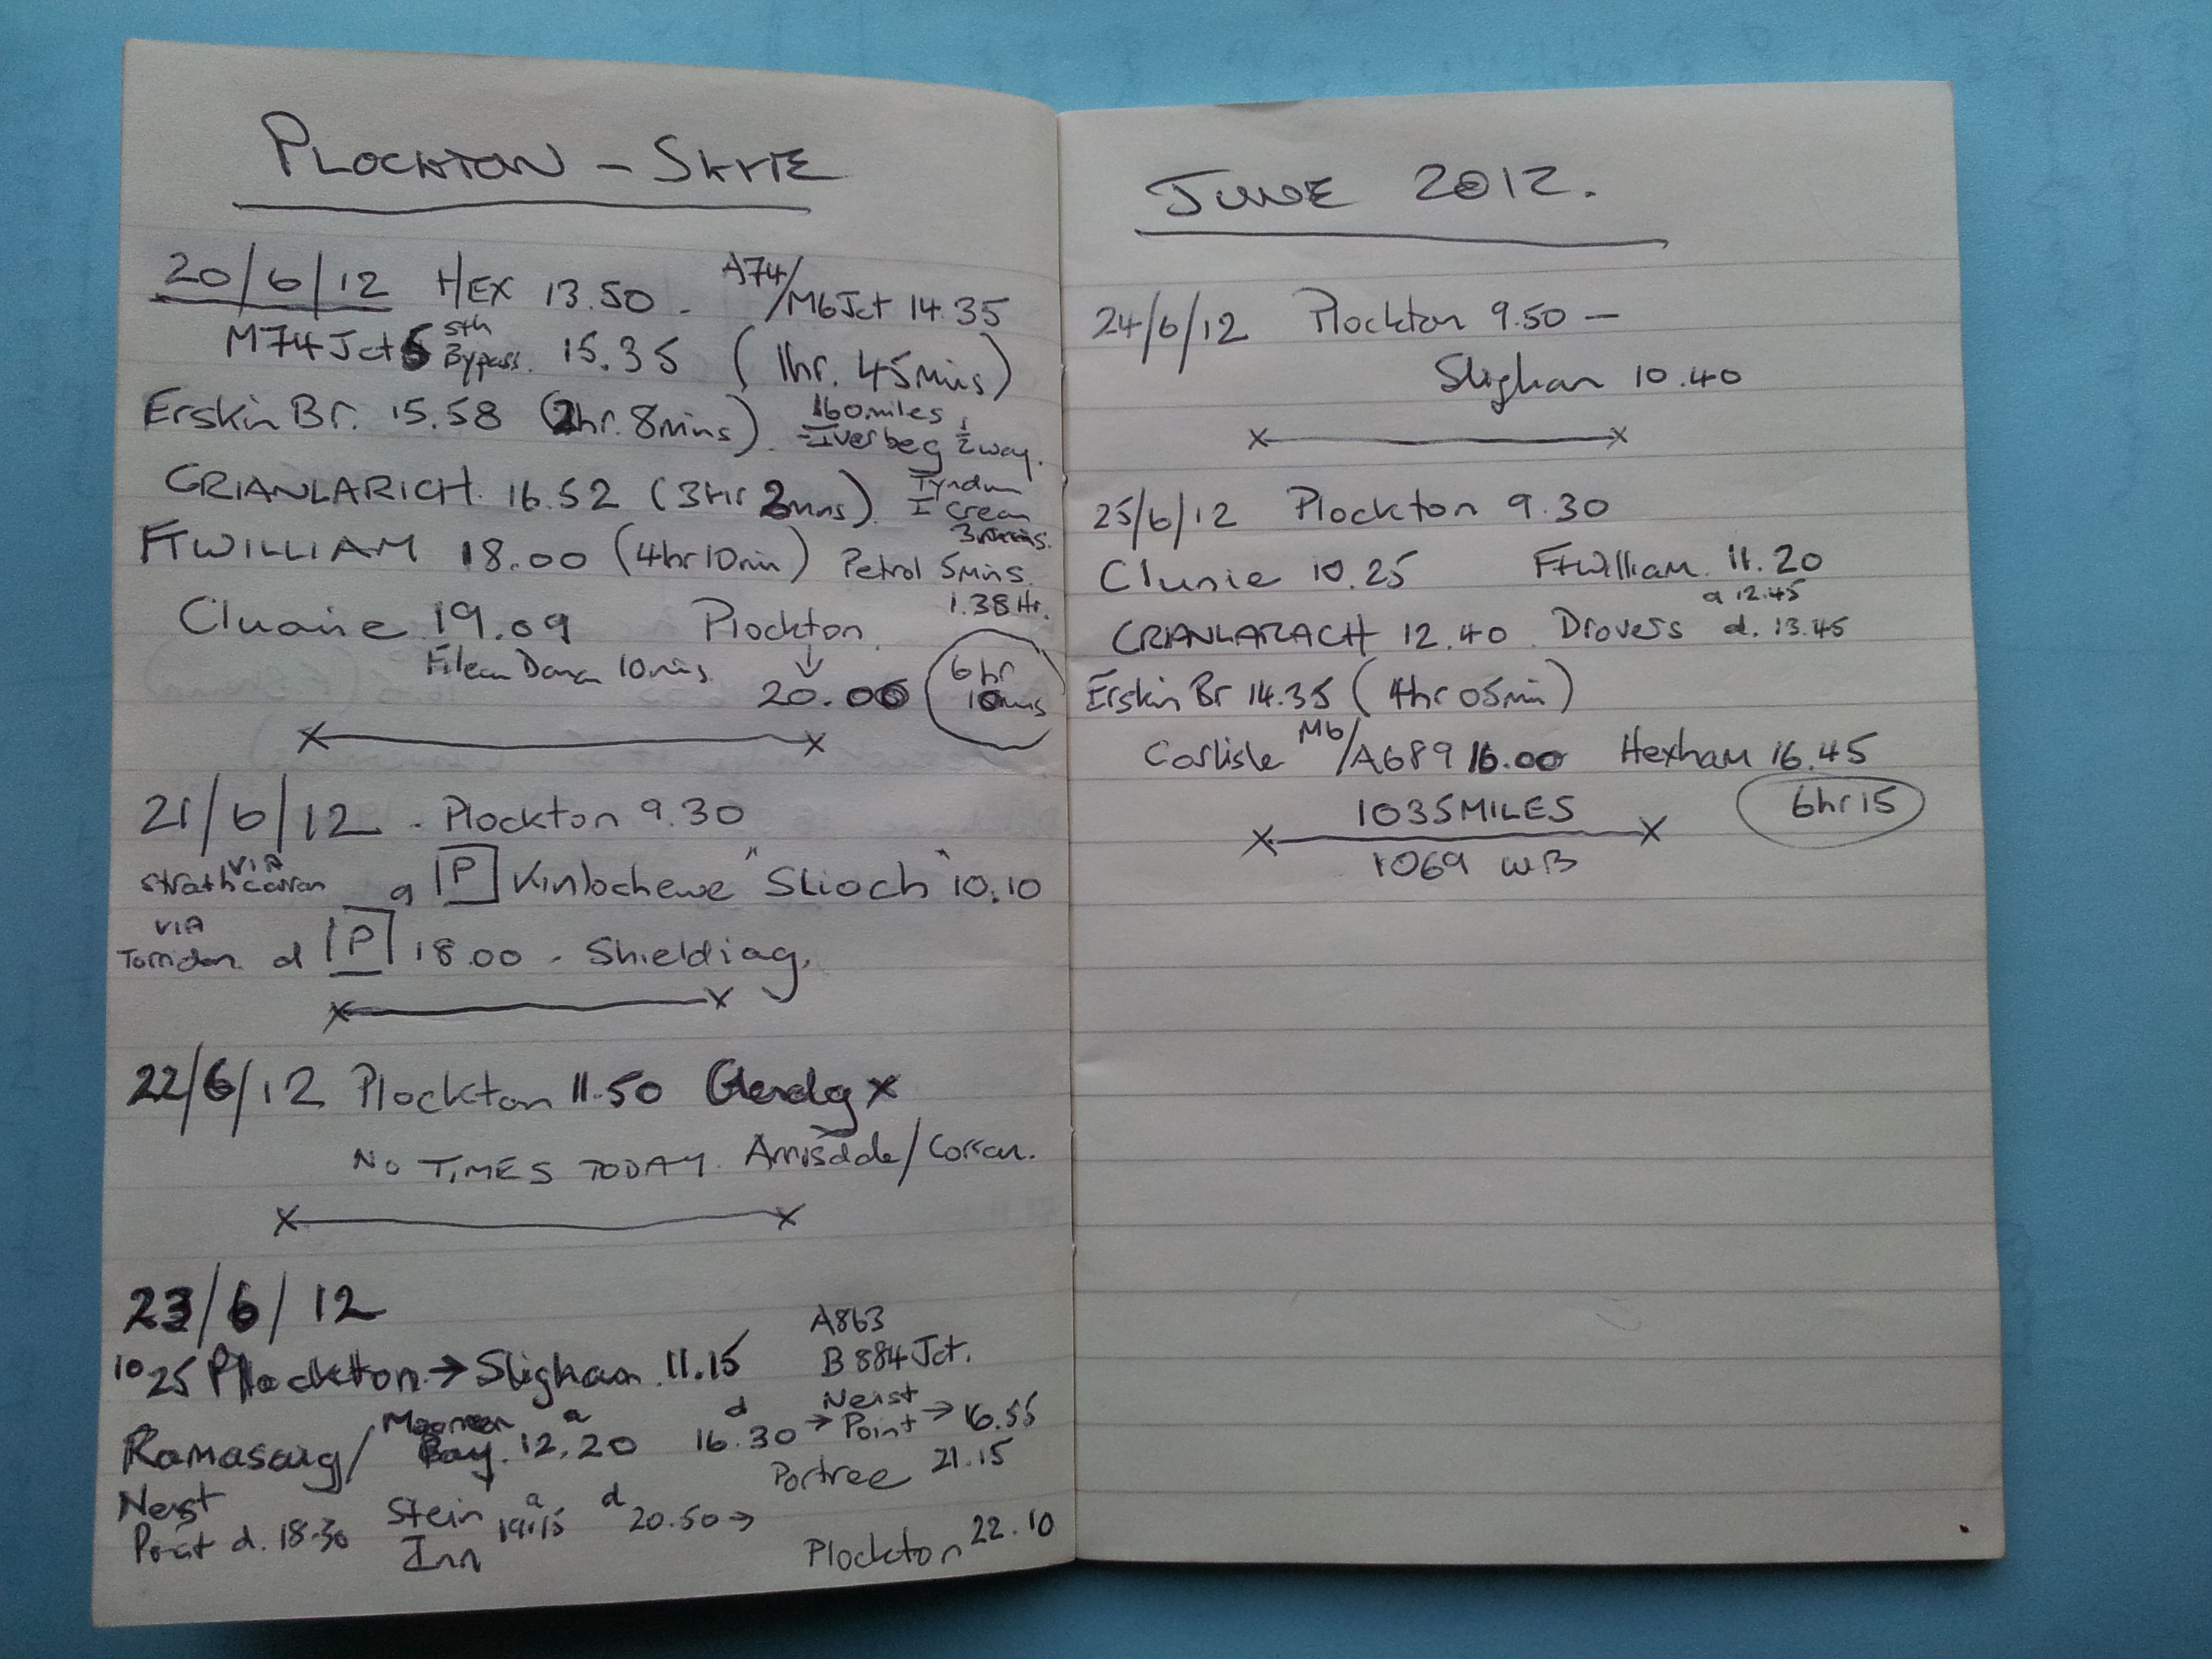 PLOCKTON - SKYE
20/6/12 HEX 13.50 - A74/M6 Jct 14.35
M74 Jct 5 Sth Bypass. 15.35 (1hr. 45mins)
Erskin Br. 15.58 (2hr. 8mins). 160miles
Iverbeg ½ way.
CRIANLARICH. 16.52 (3Hr 2mins). Tyndrum
I Cream
FTWILLIAM 18.00 (4hr 10min) Petrol 5mins.
1.38 Hr.
Cluanie 19.09 Plockton
Eilean Donan 10mins. ↓
20.00 6hr 10mins
21/6/12 - Plockton 9.30
VIA Strathcarron a [P] Kinlochewe "Slioch" 10.10
VIA Torridon d [P] 18.00 - Shieldiag.
22/6/12 Plockton 11.50 Glenelg x
NO TIMES TODAY. Arnisdale/Corran.
23/6/12
A863
10 25 Plockton → Slighan 11.15 B884 Jct.
Ramasaig/ Moonen Bay. a 12.20 d 16.30 → Neist Point → 16.55
Portree 21.15
Neist Point d. 18.30 Stein Inn a 19.15 d 20.50 →
Plockton 22.10
JUNE 2012.
24/6/12 Plockton 9.50 -
Slighan 10.40
25/6/12 Plockton 9.30
Clunie 10.25 FtWilliam. 11.20
a 12.45
CRIANLARACH 12.40 Drovers d. 13.45
Erskin Br 14.35 (4hr 05min)
Carlisle M6/A689 16.00 Hexham 16.45
1035 MILES 6hr 15
1069 WB